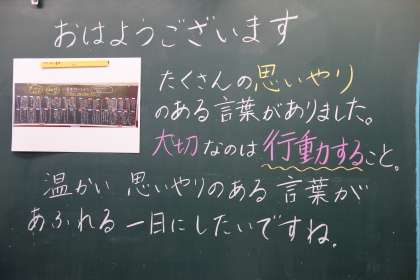 おはようございます
たくさんの思いやり
のある言葉がありました。
大切なのは行動すること。
温かい 思いやりのある 言葉が
あふれる 一日にしたいですね。